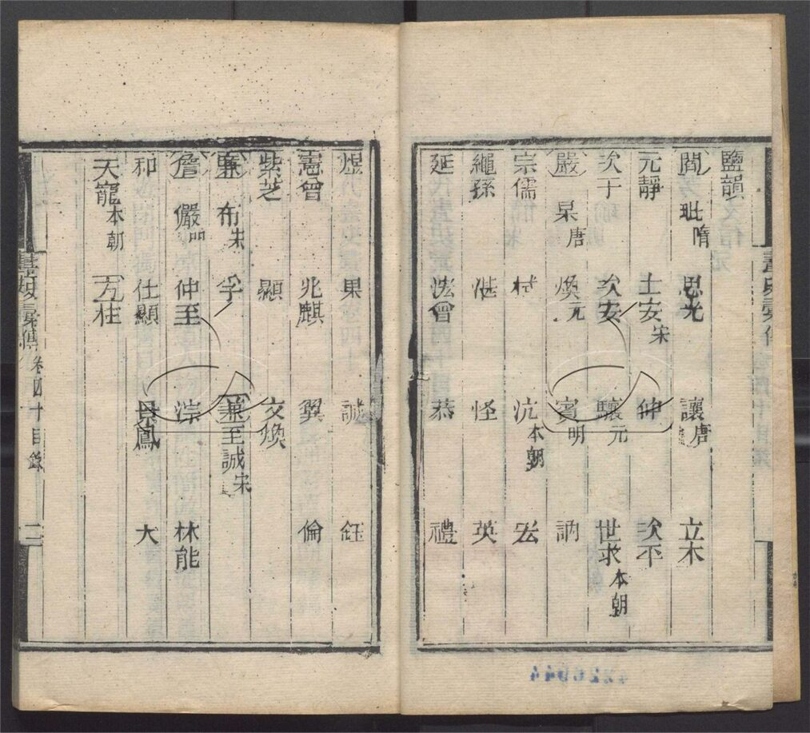 鹽韻
閻 毗隋 思光 讓唐 立本
元靜 士安宋 仲 次平
次于 次安 驤元 世求本朝
嚴 杲唐 煥元 賓明 訥
宗儒 栻 沆本朝 宏
繩孫 怪 英
延 法會 恭 禮
煜 果 誠 鈺
憲曾 兆麒 翼 倫
紫芝 顯 文煥
廉 布宋 孚 兼至誠宋
詹 儼 仲至 淙 林能
和 仕顯 丹鳳 大
天龍本朝 方柱
畫史彙傳 卷四十目錄 二